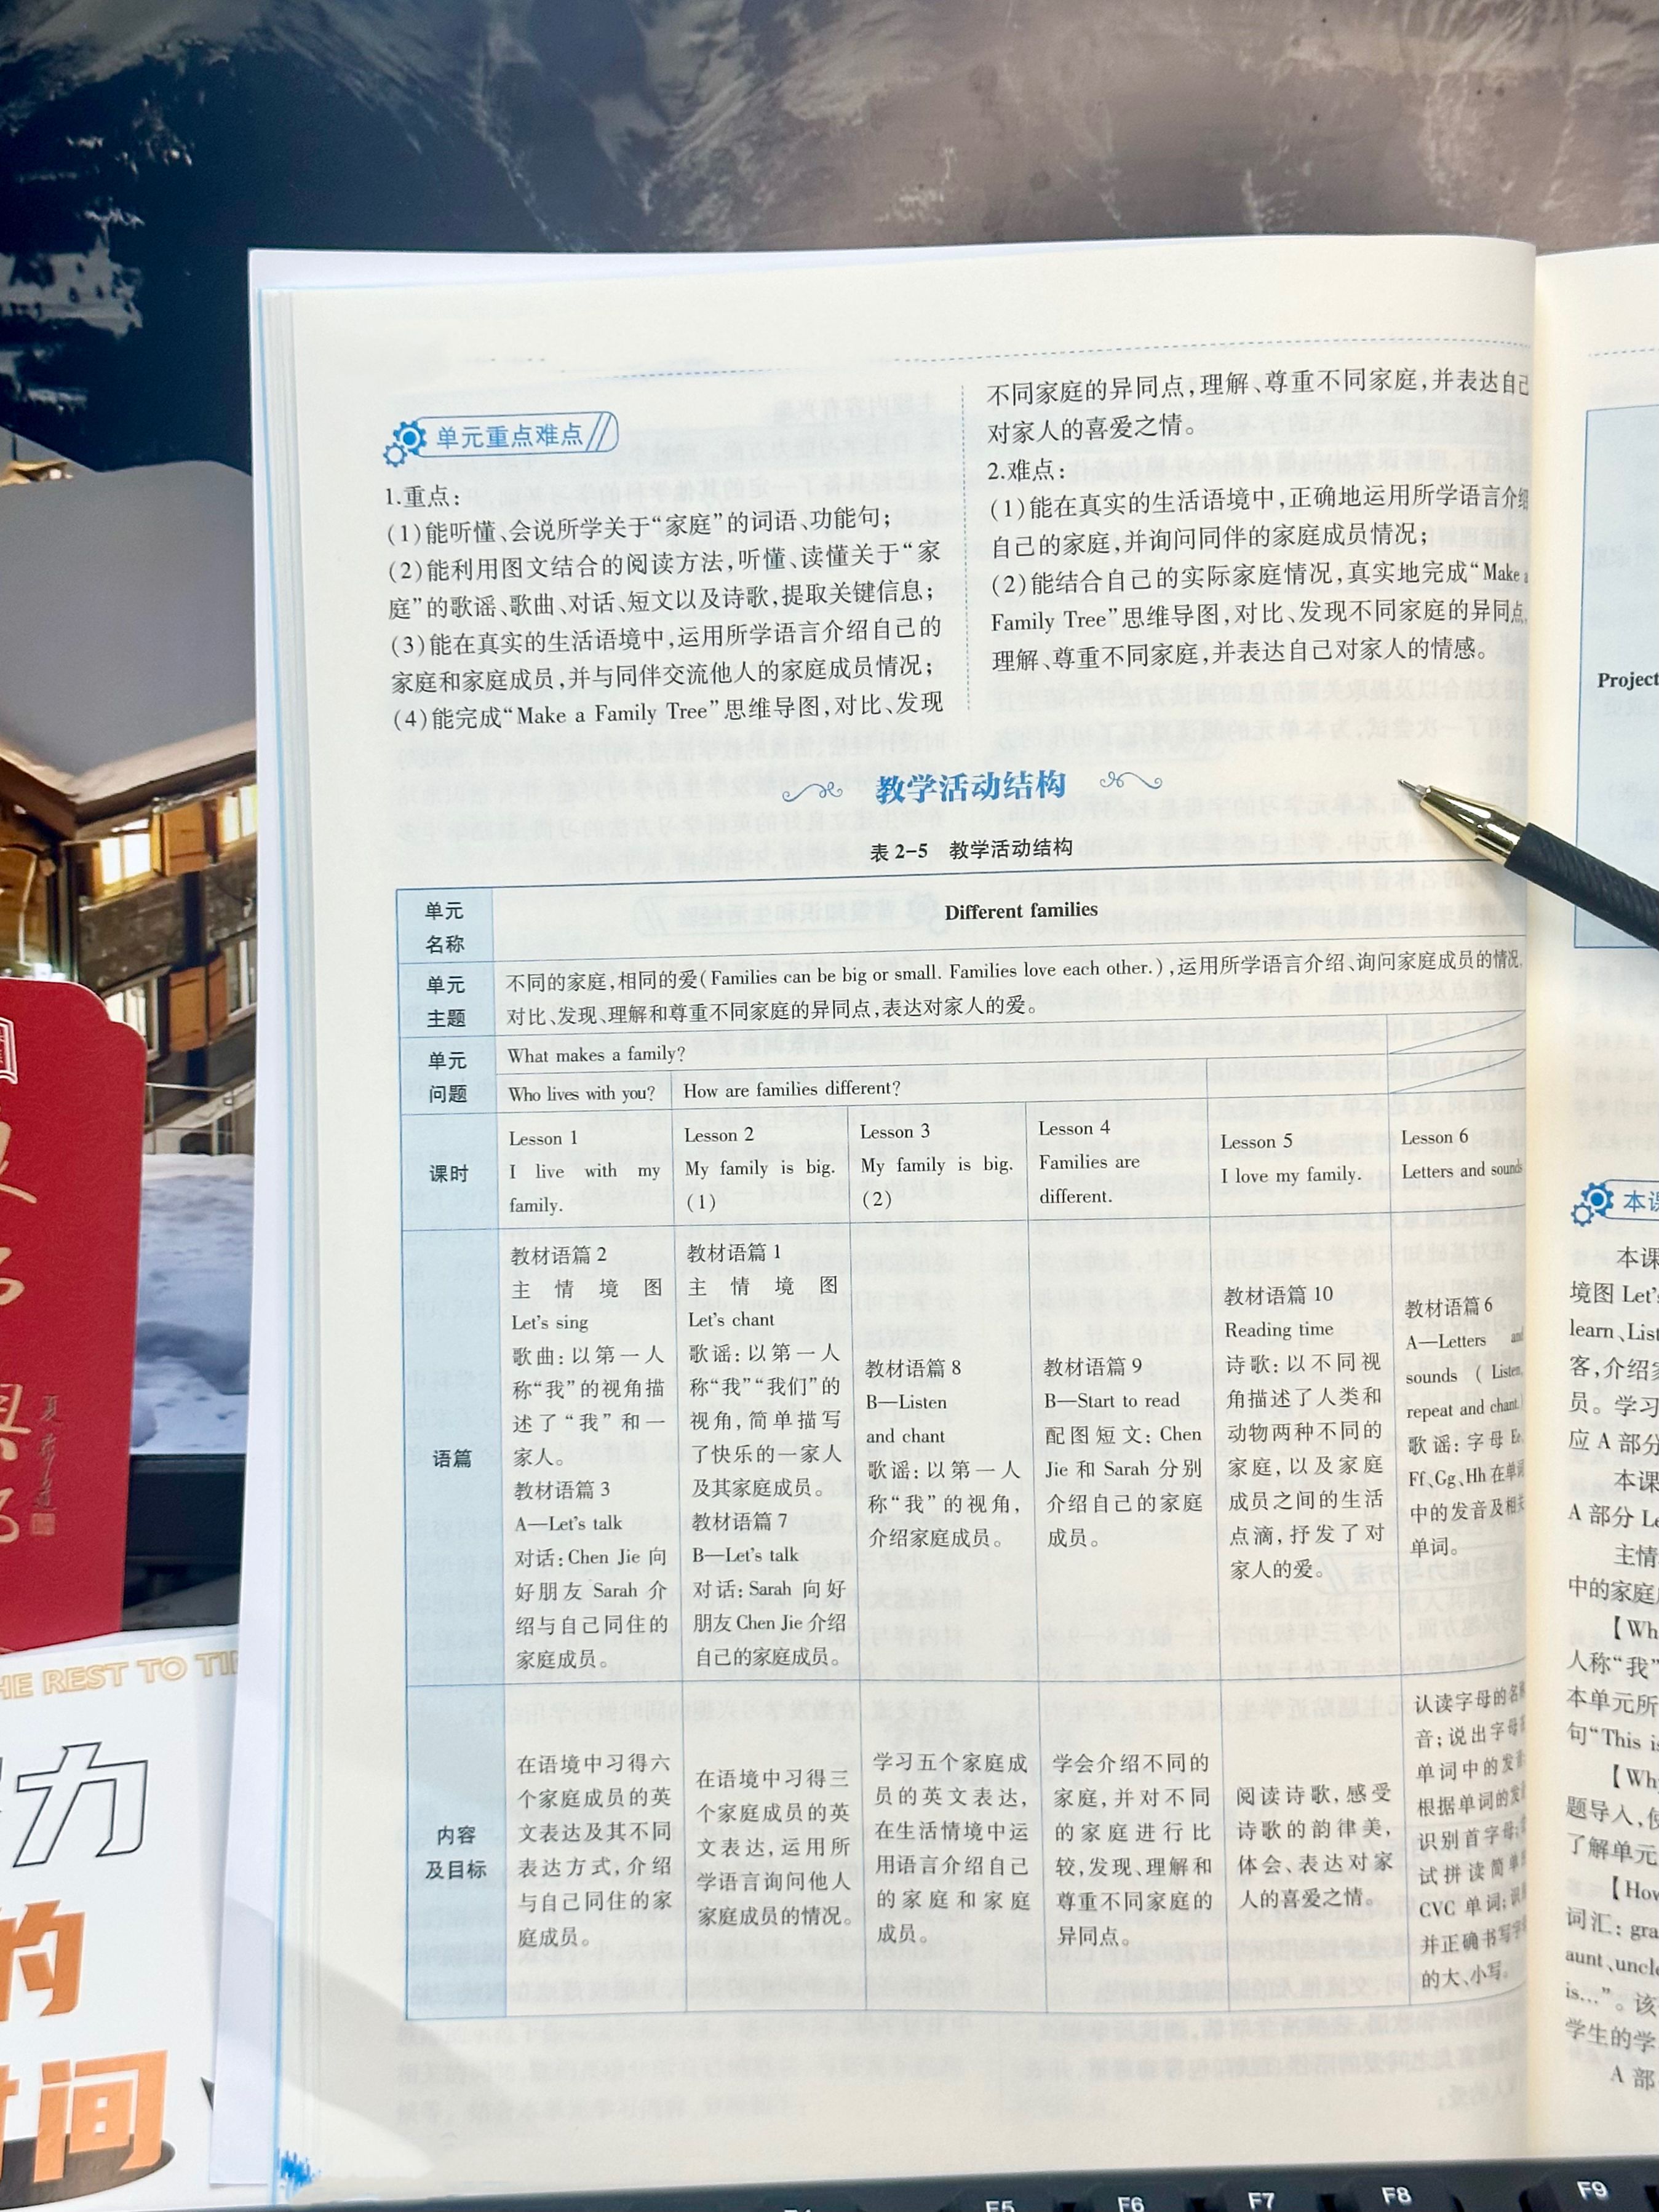 单元重点难点
1.重点：
(1)能听懂、会说所学关于“家庭”的词语、功能句；
(2)能利用图文结合的阅读方法，听懂、读懂关于“家
庭”的歌谣、歌曲、对话、短文以及诗歌，提取关键信息；
(3)能在真实的生活语境中，运用所学语言介绍自己的
家庭和家庭成员，并与同伴交流他人的家庭成员情况；
(4)能完成“Make a Family Tree”思维导图，对比、发现
不同家庭的异同点，理解、尊重不同家庭，并表达自己
对家人的喜爱之情。
2.难点：
(1)能在真实的生活语境中，正确地运用所学语言介绍
自己的家庭，并询问同伴的家庭成员情况；
(2)能结合自己的实际家庭情况，真实地完成“Make a
Family Tree”思维导图，对比、发现不同家庭的异同点，
理解、尊重不同家庭，并表达自己对家人的情感。
教学活动结构
表 2-5 教学活动结构
单元
名称
Different families
单元
主题
不同的家庭，相同的爱(Families can be big or small. Families love each other.)，运用所学语言介绍、询问家庭成员的情况，
对比、发现、理解和尊重不同家庭的异同点，表达对家人的爱。
单元
问题
What makes a family?
Who lives with you?
How are families different?
课时
Lesson 1
I live with my
family.
Lesson 2
My family is big.
(1)
Lesson 3
My family is big.
(2)
Lesson 4
Families are
different.
Lesson 5
I love my family.
Lesson 6
Letters and sounds
语篇
教材语篇 2
主情境图
Let's sing
歌曲：以第一人
称“我”的视角描
述了“我”和一
家人。
教材语篇 3
A—Let's talk
对话：Chen Jie 向
好朋友 Sarah 介
绍与自己同住的
家庭成员。
教材语篇 1
主情境图
Let's chant
歌谣：以第一人
称“我”“我们”的
视角，简单描写
了快乐的一家人
及其家庭成员。
教材语篇 7
B—Let's talk
对话：Sarah 向好
朋友 Chen Jie 介绍
自己的家庭成员。
教材语篇 8
B—Listen
and chant
歌谣：以第一人
称“我”的视角，
介绍家庭成员。
教材语篇 9
B—Start to read
配图短文：Chen
Jie 和 Sarah 分别
介绍自己的家庭
成员。
教材语篇 10
Reading time
诗歌：以不同视
角描述了人类和
动物两种不同的
家庭，以及家庭
成员之间的生活
点滴，抒发了对
家人的爱。
教材语篇 6
A—Letters and
sounds (Listen,
repeat and chant.)
歌谣：字母 Ee,
Ff、Gg、Hh 在单词
中的发音及相关
单词。
内容
及目标
在语境中习得六
个家庭成员的英
文表达及其不同
表达方式，介绍
与自己同住的家
庭成员。
在语境中习得三
个家庭成员的英
文表达，运用所
学语言询问他人
家庭成员的情况。
学习五个家庭成
员的英文表达，
在生活情境中运
用语言介绍自己
的家庭和家庭
成员。
学会介绍不同的
家庭，并对不同
的家庭进行比
较，发现、理解和
尊重不同家庭的
异同点。
阅读诗歌，感受
诗歌的韵律美，
体会、表达对家
人的喜爱之情。
认读字母的名称
音；说出字母在
单词中的发音
根据单词的发音
识别首字母；
试拼读简单的
CVC 单词；
并正确书写字母
的大、小写。
Project
本课
本课
境图 Let's
learn、List
客，介绍家
员。学习
应 A 部分
本课
A 部分 Le
主情
中的家庭
【Wh
人称“我”
本单元所
句“This is
【Why
题导入，使
了解单元
【How
词汇：gra
aunt、uncle
is…”。该
学生的学
A 部
HE REST TO TI
力
的
间
F5
F6
F7
F8
F9